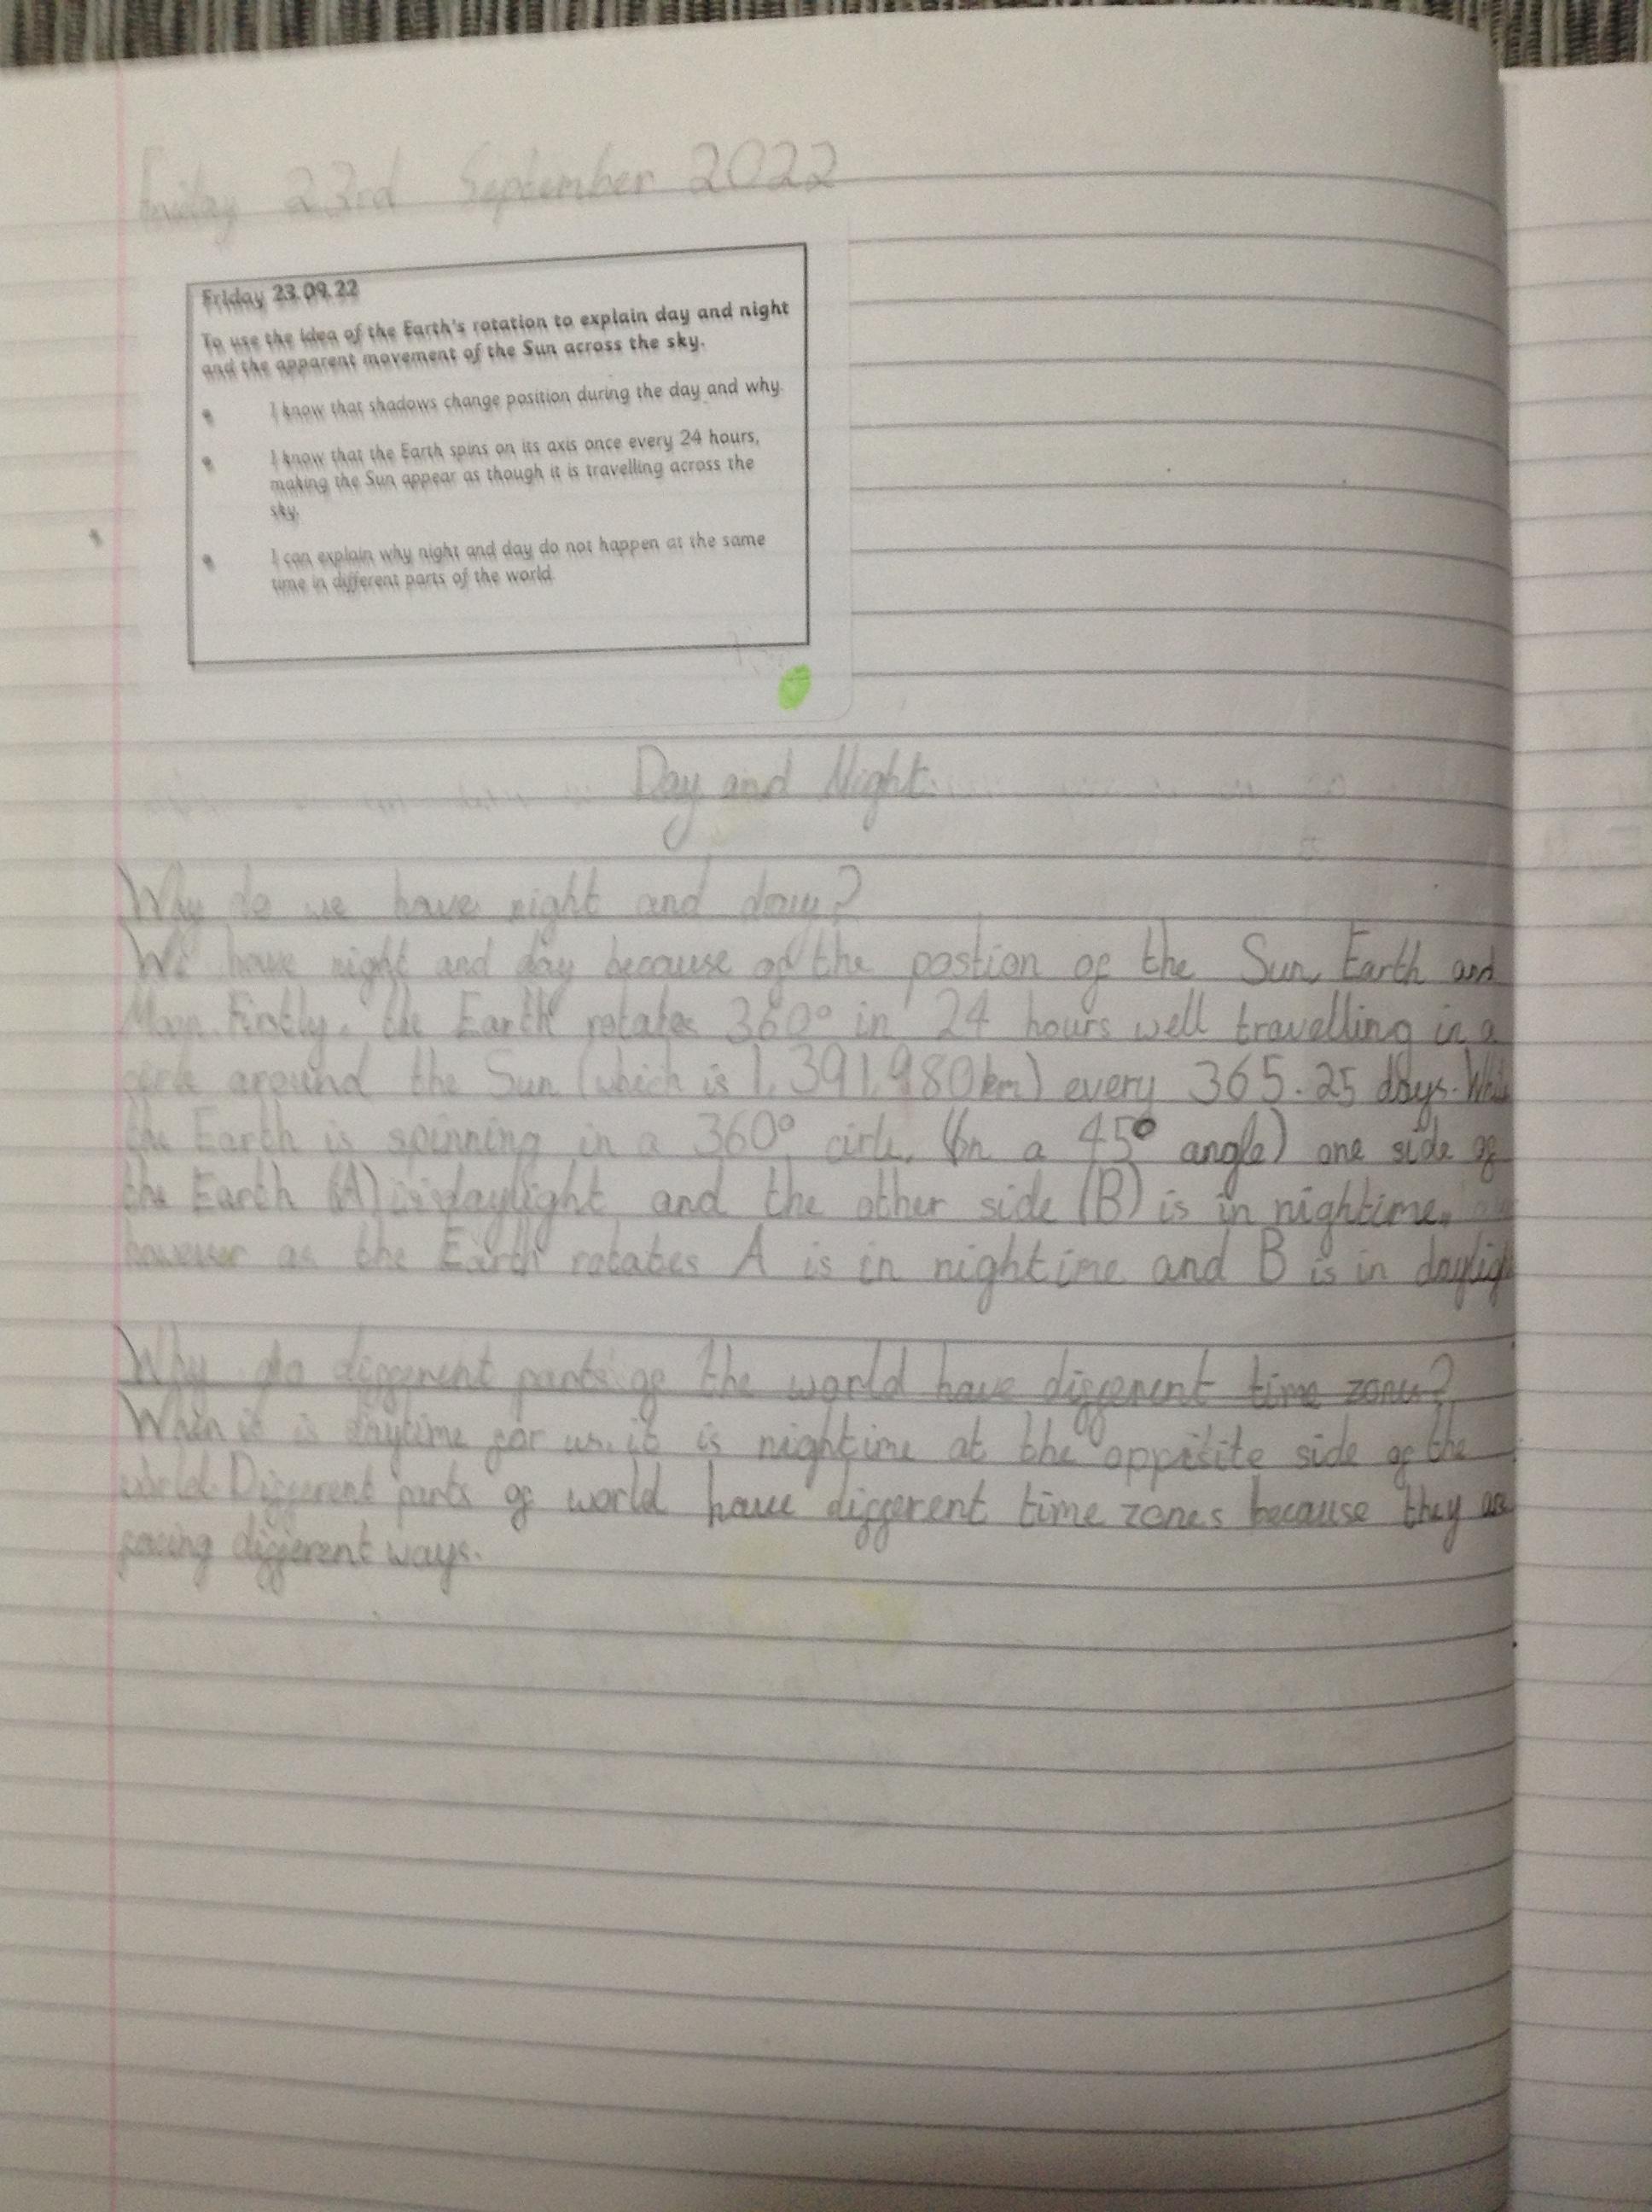 Friday 23rd September 2022
Friday 23.09.22
To use the idea of the Earth's rotation to explain day and night
and the apparent movement of the Sun across the sky.
• I know that shadows change position during the day and why.
• I know that the Earth spins on its axis once every 24 hours,
making the Sun appear as though it is travelling across the
sky.
• I can explain why night and day do not happen at the same
time in different parts of the world
Day and Night
Why do we have night and day?
We have night and day because of the postion of the Sun, Earth and
Moon. Firstly, the Earth rotates 360° in 24 hours well travelling in a
around the Sun (which is 1,391,980km) every 365.25 days. While
the Earth is spinning in a 360° cirle, (on a 45° angle) one side of
the Earth (A) is daylight and the other side (B) is in nightime,
however as the Earth rotates A is in nightime and B is in daylight
Why do different parts of the world have different time zones?
When it is daytime for us, it is nightime at the oppisite side of the
world. Different parts of world have different time zones because they are
facing different ways.